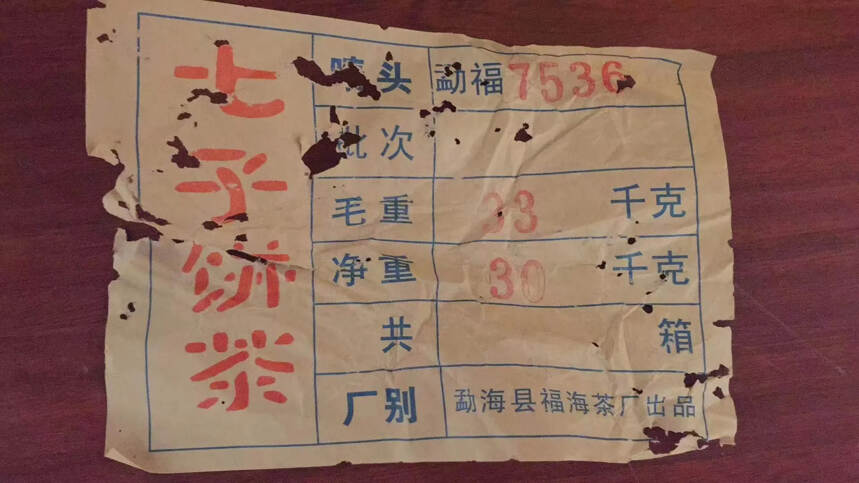 七子饼茶
唛头 勐福7536
批次
毛重 33 千克
净重 30 千克
共 箱
厂别 勐海县福海茶厂出品